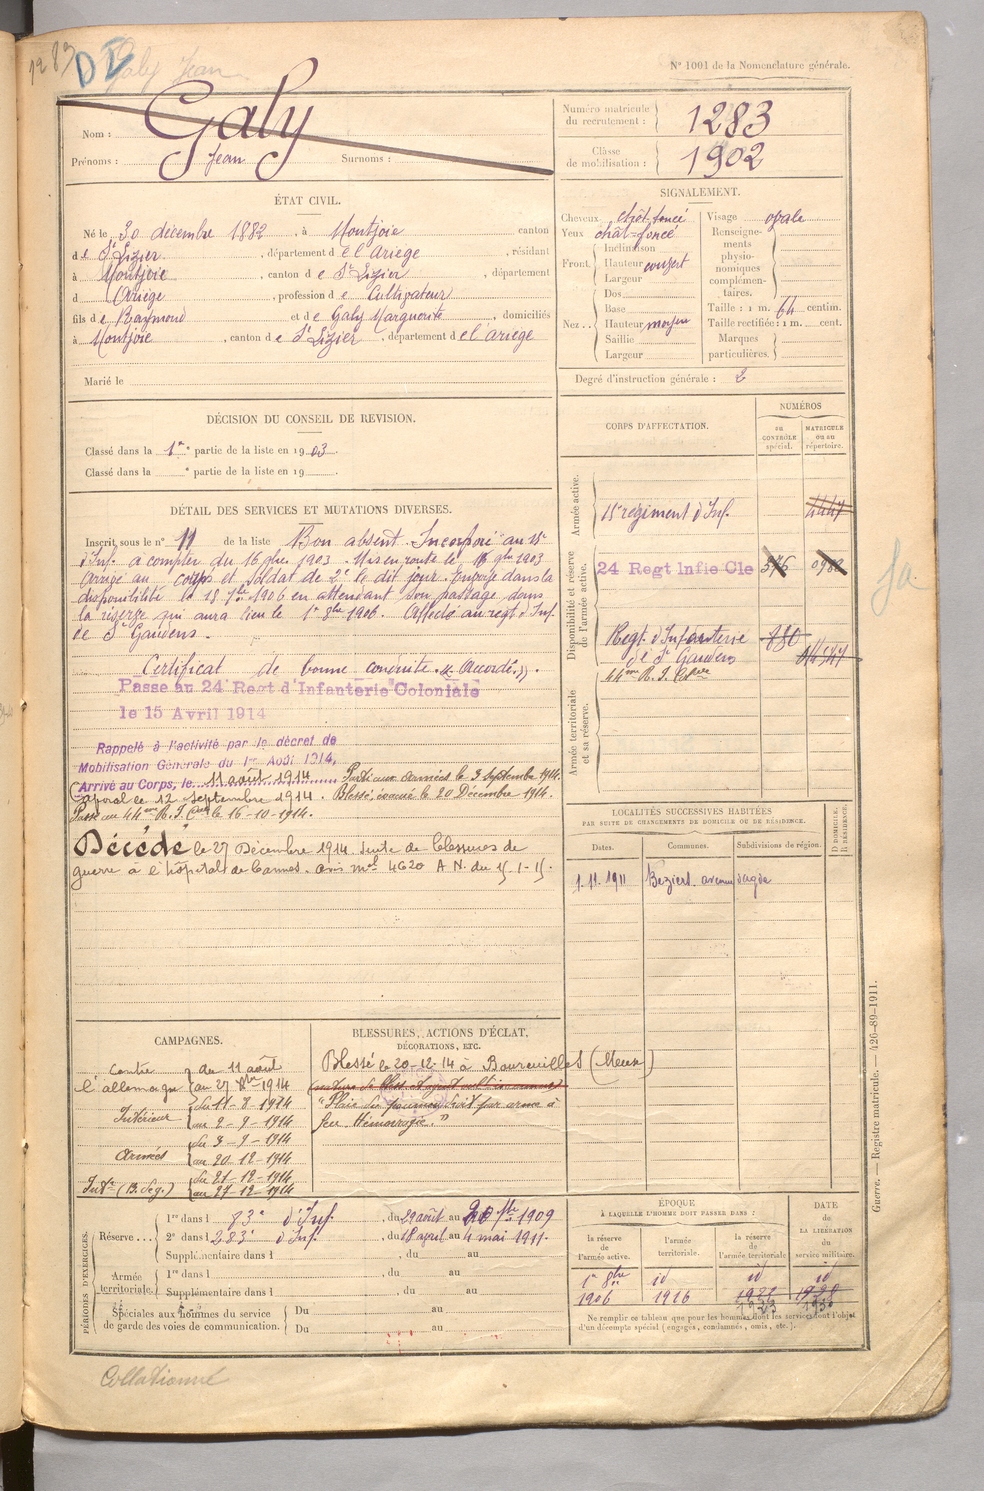 1283
DE
Galy Jean
N° 1001 de la Nomenclature générale.
Nom : Galy
Prénoms : Jean Surnoms :
Numéro matricule du recrutement : 1283
Classe de mobilisation : 1902
ÉTAT CIVIL.
Né le 30 décembre 1882, à Montjoie canton
de St Lizier, département de l'Ariège, résidant
à Montjoie, canton de St Lizier, département
d Ariège, profession de Cultivateur
fils de Raymond et de Galy Marguerite, domiciliés
à Montjoie, canton de St Lizier, département de l'Ariège
Marié le
SIGNALEMENT.
Cheveux chât-foncé
Yeux chât-foncé
Front. Inclinaison
Hauteur couvert
Largeur
Nez Dos
Base
Hauteur moyen
Saillie
Largeur
Visage ovale
Renseignements physionomiques complémentaires.
Taille : 1 m. 64 centim.
Taille rectifiée : 1 m. cent.
Marques particulières.
Degré d'instruction générale : 2
DÉCISION DU CONSEIL DE REVISION.
Classé dans la 1re partie de la liste en 1903.
Classé dans la e partie de la liste en 19
DÉTAIL DES SERVICES ET MUTATIONS DIVERSES.
Inscrit sous le n° 11 de la liste Bon absent. Incorporé au 15e
d'Inf. à compter du 16 9bre 1903. Mis en route le 16 9bre 1903
arrivé au corps et soldat de 2e le dit jour. Envoyé dans la
disponibilité le 18 7bre 1906 en attendant son passage dans
la réserve qui aura lieu le 1er 8bre 1906. Affecté au regt d'Inf.
de St Gaudens.
Certificat de bonne conduite "Accordé".
Passe au 24e Regt d'Infanterie Coloniale
le 15 Avril 1914
Rappelé à l'activité par le décret de
Mobilisation Générale du 1er Août 1914,
Arrivé au Corps, le 11 août 1914 Parti aux Armées le 3 Septembre 1914.
Caporal le 12 Septembre 1914. Blessé, évacué le 20 Décembre 1914.
Passé au 44me R.I. Cale le 16-10-1914.
Décédé le 27 Décembre 1914 Suite de blessures de
guerre à l'hôpital de Cannes. avis mel 4620 A N. du 15-1-15.
CORPS D'AFFECTATION.
NUMÉROS
au CONTRÔLE spécial.
MATRICULE ou au répertoire.
Armée active.
15e régiment d'Inf. 4447
Disponibilité et réserve de l'armée active.
24 Regt Infie Cle 576
Regt. d'Infanterie 780
de St Gaudens
44me R.I.
Armée territoriale et sa réserve.
fa
LOCALITÉS SUCCESSIVES HABITÉES
PAR SUITE DE CHANGEMENTS DE DOMICILE OU DE RÉSIDENCE.
Dates. Communes. Subdivisions de région. D. DOMICILE. R. RÉSIDENCE.
1.11.1911 Beziers. avenue d'agde
CAMPAGNES.
Contre l'allemagne du 11 août
au 27 Xbre 1914
Intérieur du 11-8-1914
au 2-9-1914
Armées du 3-9-1914
au 20-12-1914
Intr (B. Seg.) du 21-12-1914
au 27-12-1914
BLESSURES, ACTIONS D'ÉCLAT,
DÉCORATIONS, ETC.
Blessé le 20-12-14 à Boureuilles (Meuse)
"Plaie du poumon droit par arme à
feu. Hémorragie."
PÉRIODES D'EXERCICES.
Réserve ... 1re dans l 83e d'Inf., du 29 août au 20 7bre 1909
2e dans l 283e d'Inf., du 18 avril au 4 mai 1911.
Supplémentaire dans l , du au
Armée territoriale. 1re dans l , du au
Supplémentaire dans l , du au
Spéciales aux hommes du service de garde des voies de communication. Du au
Du au
ÉPOQUE
À LAQUELLE L'HOMME DOIT PASSER DANS :
la réserve de l'armée active. l'armée territoriale. la réserve de l'armée territoriale
DATE de LA LIBÉRATION du service militaire.
1er 8bre id id id
1906 1916 1922 1928
Ne remplir ce tableau que pour les hommes dont les services font l'objet
d'un décompte spécial (engagés, condamnés, omis, etc.).
Guerre. — Registre matricule. — 426-89-1911.
Collationné